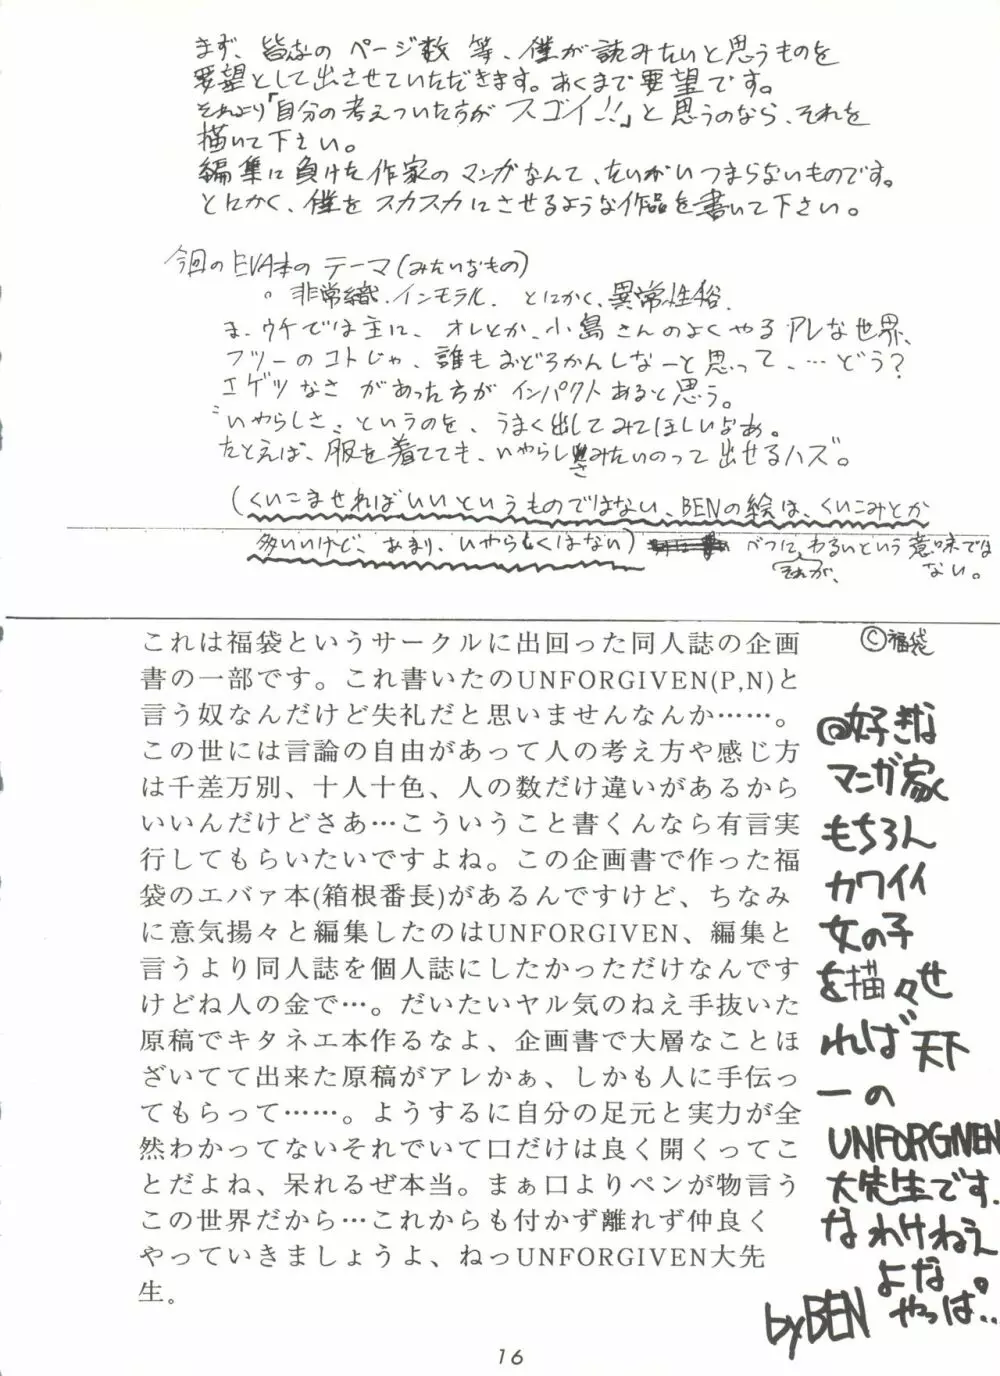 まず、皆なの ページ数 等、僕が読みたいと思うものを
要望として出させていただきます。あくまで要望です。
それより「自分の考えついた方が スゴイ!!」と思うのなら、それを
描いて下さい。
編集に負けた作家のマンガなんて、たいがいつまらないものです。
とにかく、僕を スカスカにさせるような作品を書いて下さい。
今回のEVA本の テーマ(みたいなもの)
。非常織.インモラル. とにかく、異常性俗.
ま、ウチでは主に、オレとか、小島さんのよくやるアレな世界、
フツーのコトじゃ、誰もおどろかんしなーと思って、…どう?
エゲツなさ があった方が インパクトあると思う。
"いやらしさ"というのを、うまく出してみてほしいなあ。
たとえば、服を着てても、いやらしさみたいのって出せるハズ。
(くいこませればいいというものではない、BENの絵は、くいこみとか
多いけど、あまり、いやらしくはない) べつに、わるいという意味では
それが、 ない。
これは福袋というサークルに出回った同人誌の企画
書の一部です。これ書いたのUNFORGIVEN(P,N)と
言う奴なんだけど失礼だと思いませんなんか……。
この世には言論の自由があって人の考え方や感じ方
は千差万別、十人十色、人の数だけ違いがあるから
いいんだけどさあ…こういうこと書くんなら有言実
行してもらいたいですよね。この企画書で作った福
袋のエバァ本(箱根番長)があるんですけど、ちなみ
に意気揚々と編集したのはUNFORGIVEN、編集と
言うより同人誌を個人誌にしたかっただけなんです
けどね人の金で…。だいたいヤル気のねえ手抜いた
原稿でキタネエ本作るなよ、企画書で大層なことほ
ざいてて出来た原稿がアレかぁ、しかも人に手伝っ
てもらって……。ようするに自分の足元と実力が全
然わかってないそれでいて口だけは良く開くってこ
とだよね、呆れるぜ本当。まぁ口よりペンが物言う
この世界だから…これからも付かず離れず仲良く
やっていきましょうよ、ねっUNFORGIVEN大先
生。
©福袋
@好きな
マンガ家
もちろん
カワイイ
女の子
を描々せ
れば天下
一の
UNFORGIVEN
大先生です.
なわけねぇ
よな。
やっぱ..
by BEN
16